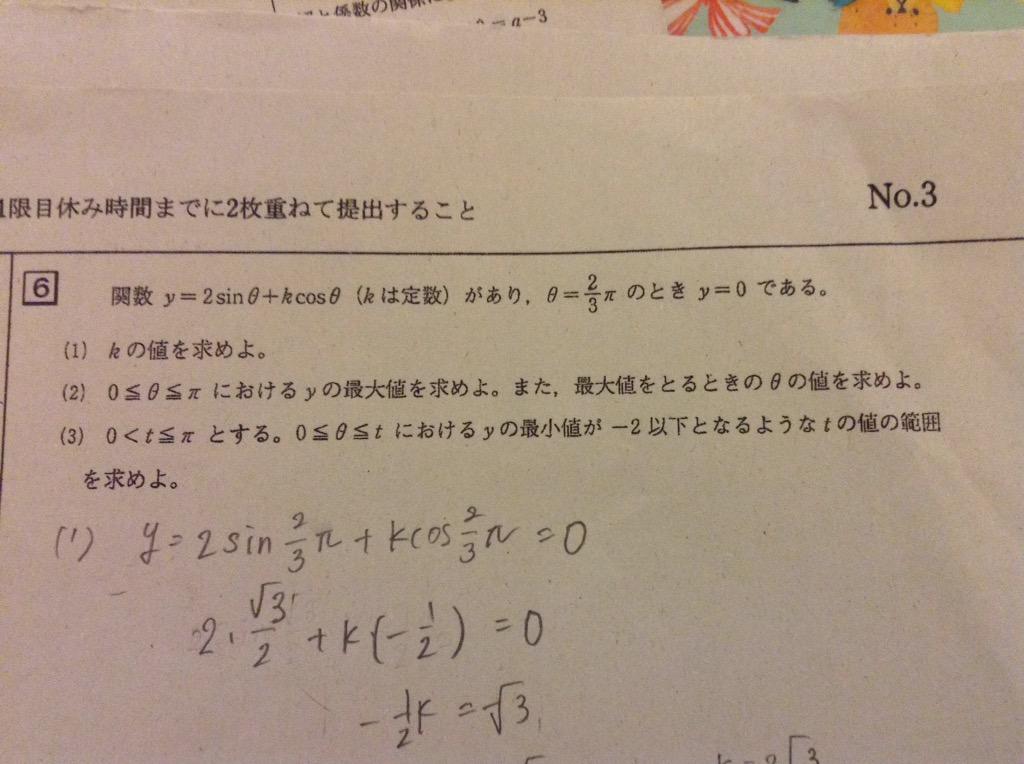 係数の関係に
a-3
1限目休み時間までに2枚重ねて提出すること
No.3
6 関数 y=2sinθ+kcosθ (kは定数) があり, θ=2/3π のとき y=0 である。
(1) kの値を求めよ。
(2) 0≦θ≦π におけるyの最大値を求めよ。また, 最大値をとるときのθの値を求めよ。
(3) 0<t≦π とする。0≦θ≦t におけるyの最小値が -2以下となるようなtの値の範囲
を求めよ。
(1) y=2sin2/3π+kcos2/3π=0
2・√3/2+k(-1/2)=0
-1/2k=√3
k=2√3